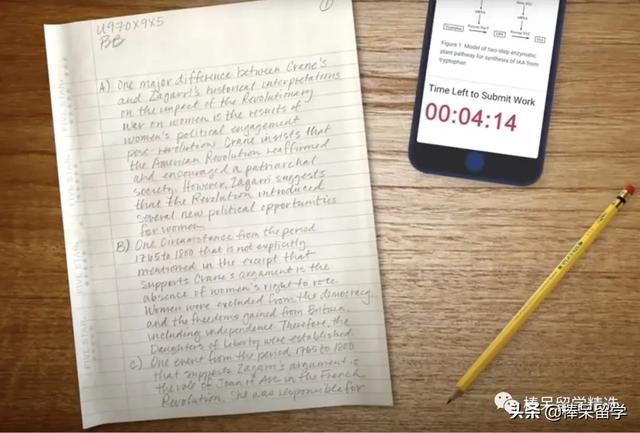 ①
U970X9X5
BB
A) One major difference between Crane's
and Zagarri's historical interpretations
on the impact of the Revolutionary
War on women is the results of
women's political engagement
post-revolution. Crane insists that
the American Revolution reaffirmed
and encouraged a patriarchal
society. However, Zagarri suggests
that the Revolution introduced
several new political opportunities
for women.
B) One circumstance from the period
1765 to 1800 that is not explicitly
mentioned in the excerpt that
supports Crane's argument is the
absence of women's right to vote.
Women were excluded from the democracy
and the freedoms gained from Britain,
including independence. Therefore, the
Daughters of Liberty were established.
C) One event from the period 1765 to 1800
that supports Zagarri's argument is
the role of Joan of Arc in the French
Revolution. She was responsible for
FIVE STAR
FIVE STAR
FIVE STAR
Figure 1. Model of two-step enzymatic
plant pathway for synthesis of IAA from
tryptophan.
Time Left to Submit Work
00:04:14
棒呆留学精选
头条 @棒呆留学